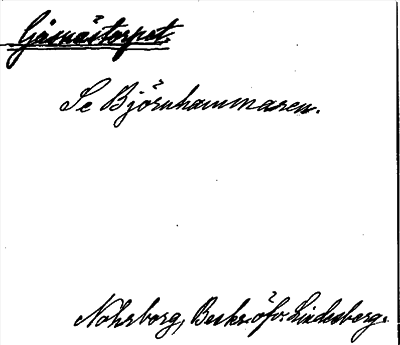 Gåsnästorpet.
Se Björnhammaren.
Nohrborg, Beskr. öfv. Lindesberg.